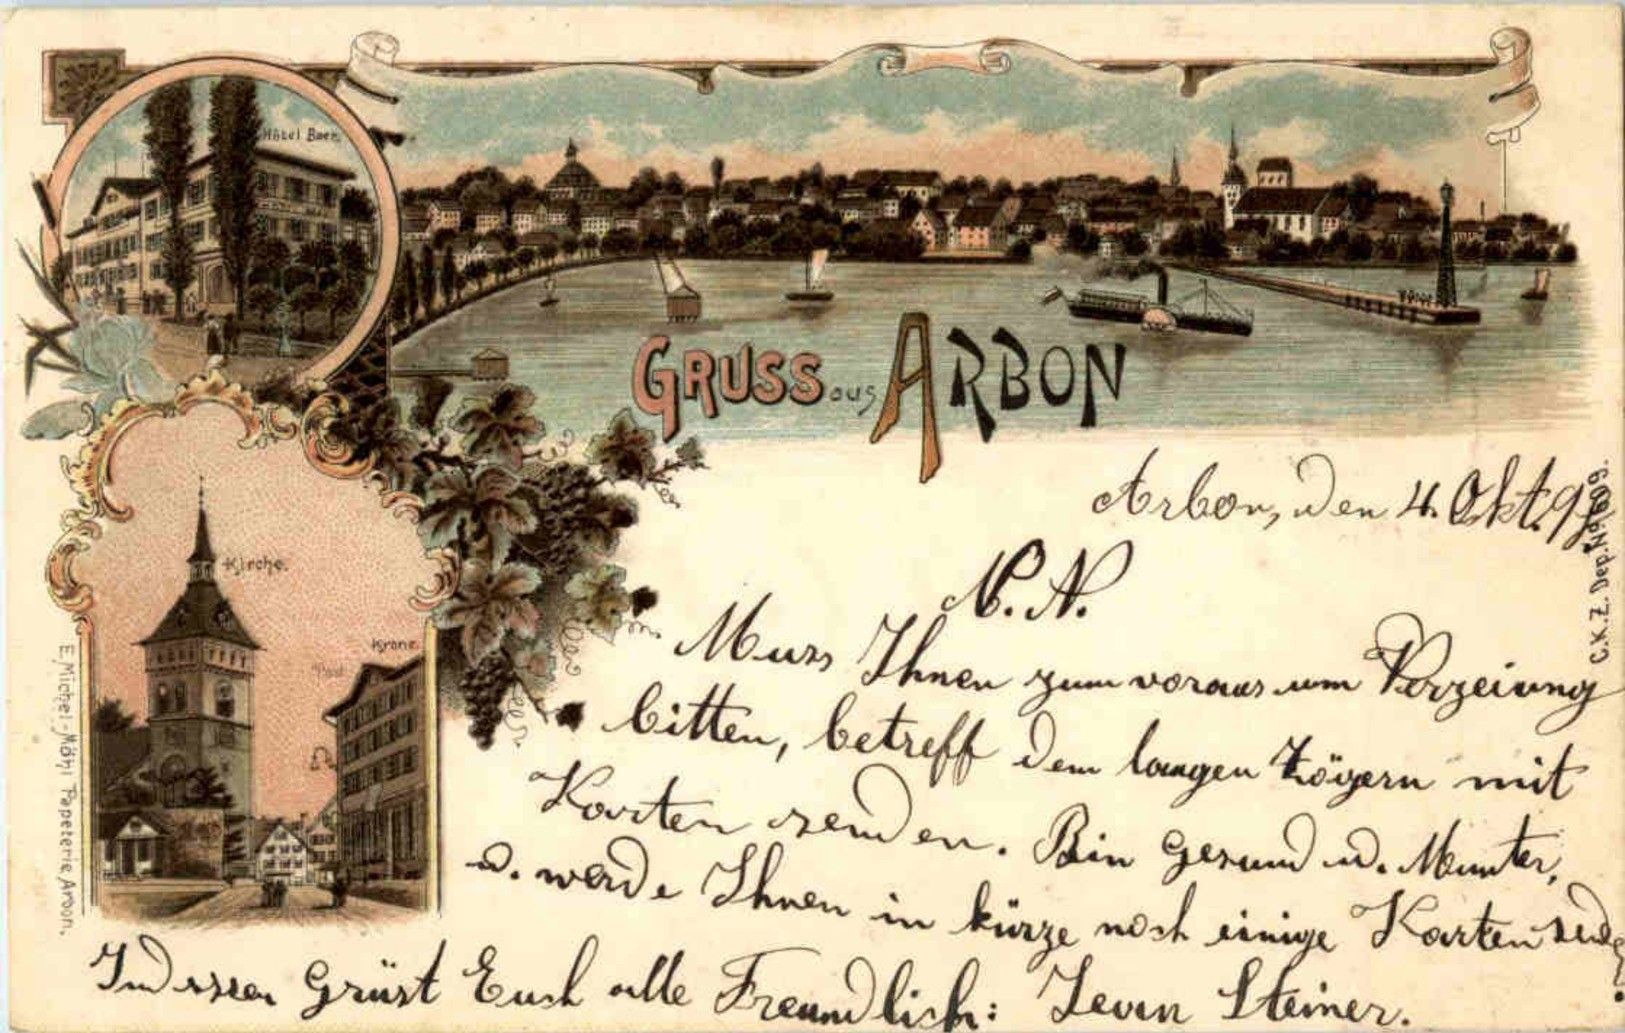 Hôtel Baer.
GRUSS aus ARBON
Kirche.
Krone.
Post
E. Michel-Nähl Papeterie, Arbon.
C.K.Z. Dep. No. 1609.
Arbon, den 4. Okt. 97
N. N.
Muss Ihnen zum voraus um Verzeiung
bitten, betreff dem langen Zögern mit
Karten senden. Bin Gesund u. Munter,
u. werde Ihnen in kürze noch einige Karten senden.
Indessen Grüst Euch alle Freundlich: Steiner.